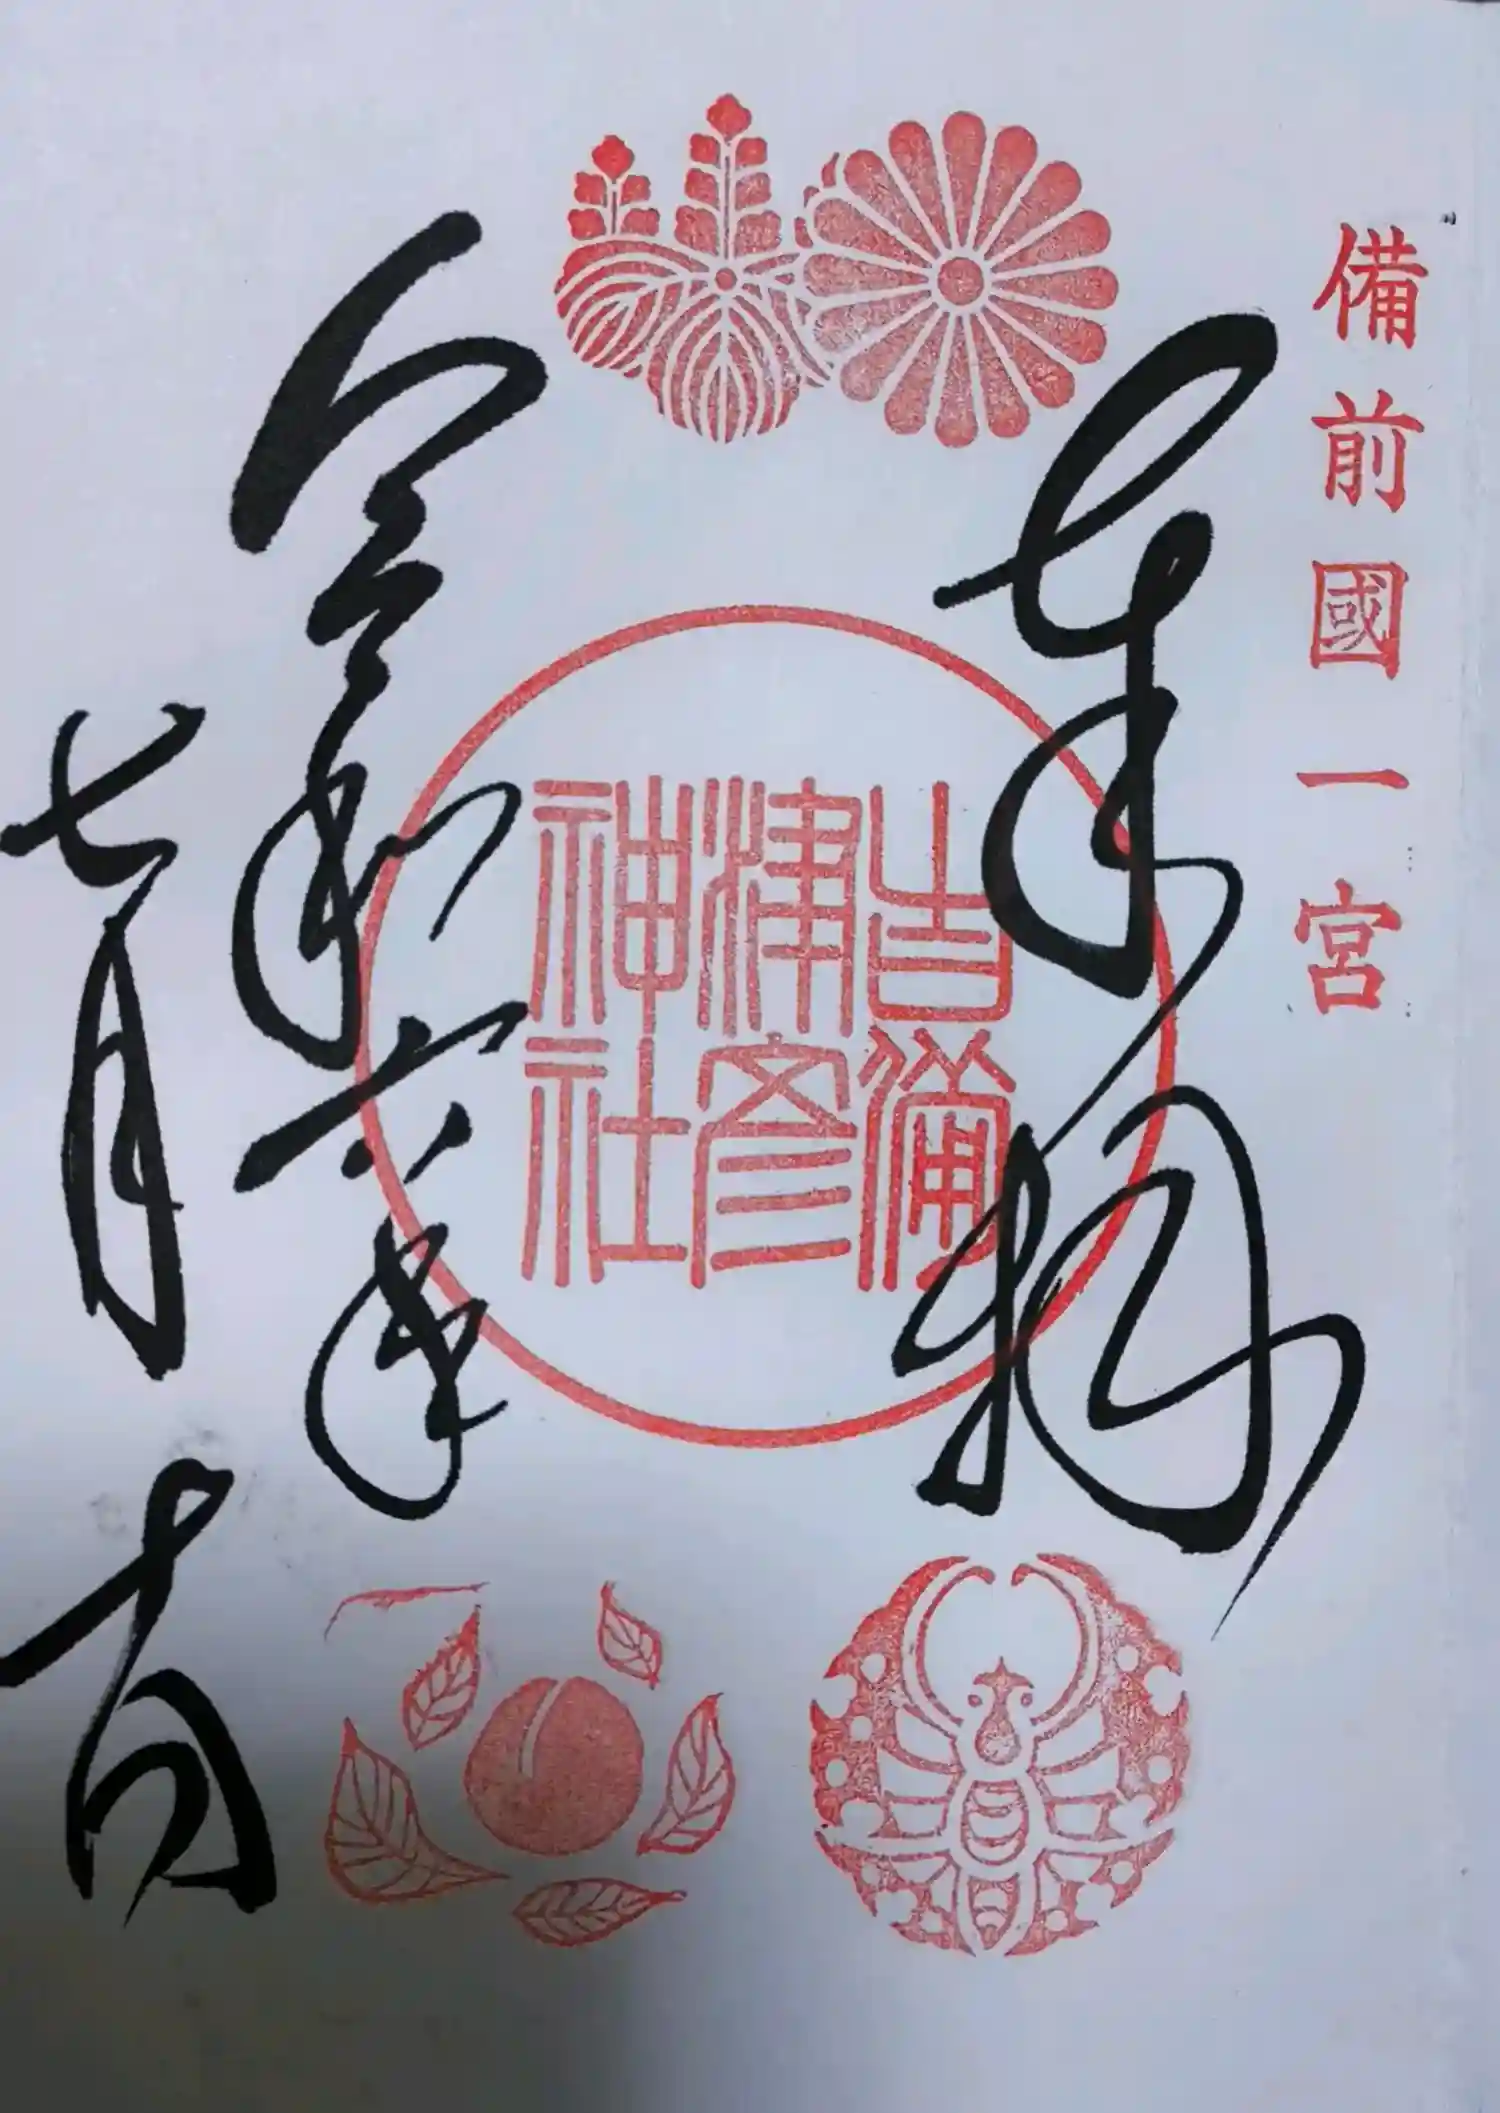 備前國一宮
奉拝
吉備
津彦
神社
令和六年
七月